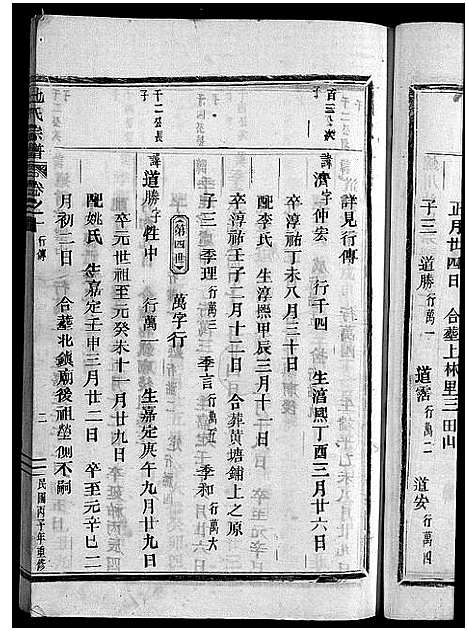 正月廿四日 合葬上林里三田山
子三 道勝行萬一 道霑行萬二 道安行萬四
詳見行傳
百三公次子
諱濟字仲宏 行千四 生淳熙丁酉三月廿六日
卒淳祐丁未八月三十日
配李氏 生淳熙甲辰三月十一日
卒淳祐壬子二月十二日 合葬黄墙鋪上之原
子三 季理行萬三 季言行萬五 季和行萬六
第四世 萬字行
千二公長子
諱道勝字牲中 行萬一 生嘉定庚午九月廿九日
卒元世祖至元癸未十一月廿九日
配姚氏 生嘉定壬申三月廿二日 卒至元辛巳二
月初二日 合葬北鎮廟後祖塋側不嗣
氏宗譜 卷之一 行傳 二 民國丙子年重修